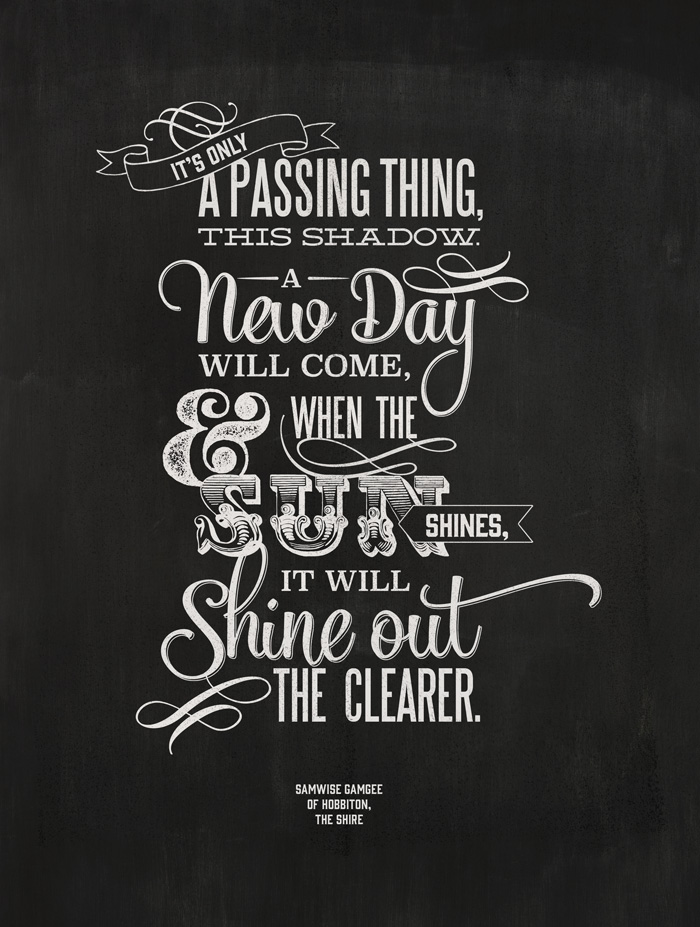 IT'S ONLY
A PASSING THING,
THIS SHADOW.
A
New Day
WILL COME,
& WHEN THE
SUN SHINES,
IT WILL
Shine out
THE CLEARER.
SAMWISE GAMGEE
OF HOBBITON,
THE SHIRE